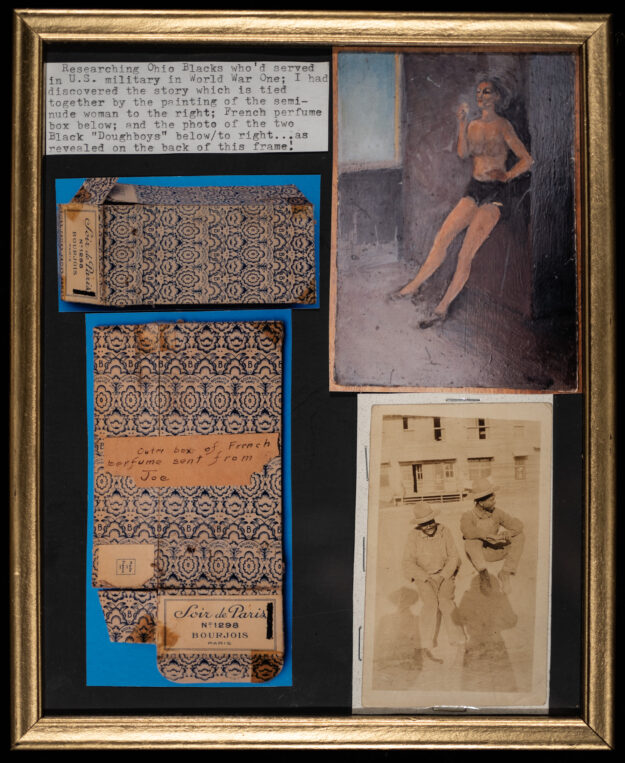 Researching Ohio Blacks who'd served
in U.S. military in World War One; I had
discovered the story which is tied
together by the painting of the semi-
nude woman to the right; French perfume
box below; and the photo of the two
Black "Doughboys" below/to right...as
revealed on the back of this frame!
Soir de Paris
Nº 1298
BOURJOIS
PARIS
Outer box of French
perfume sent from
Joe
Soir de Paris
Nº 1298
BOURJOIS
PARIS